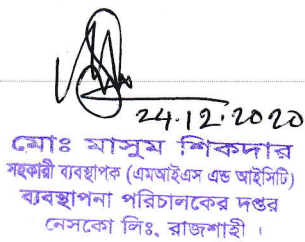 24.12.2020
মোঃ মাসুম শিকদার
সহকারী ব্যবস্থাপক (এমআইএস এন্ড আইসিটি)
ব্যবস্থাপনা পরিচালকের দপ্তর
নেসকো লিঃ, রাজশাহী ।